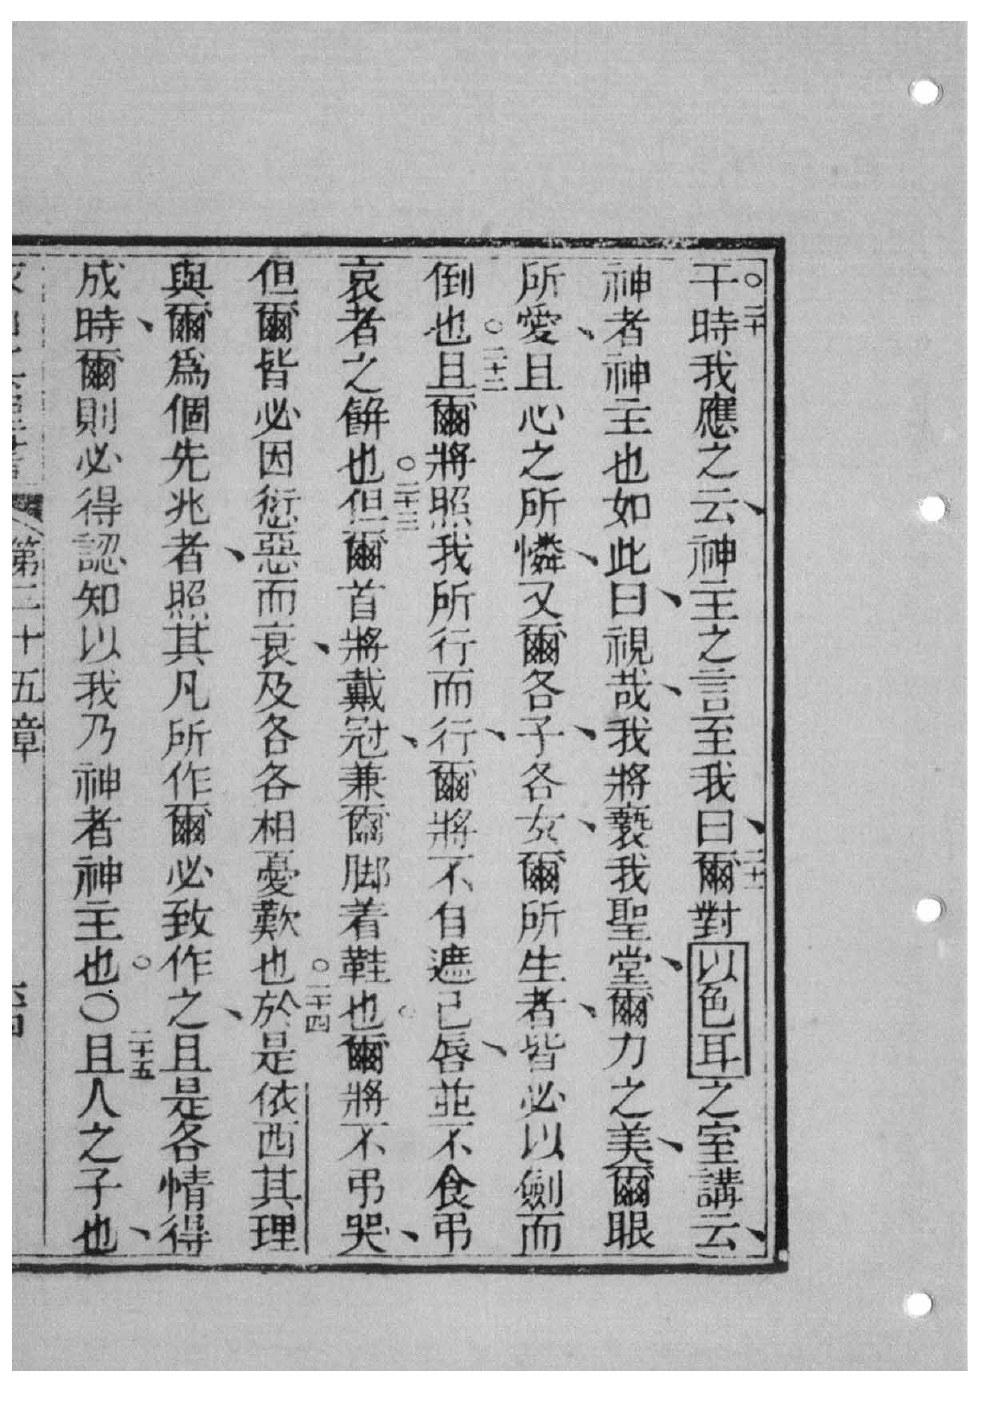 ○二十干時我應之云、神主之言至我曰、二十一爾對以色耳之室講云、
神者神主也如此曰、視哉、我將褻我聖堂、爾力之美、爾眼
所愛、且心之所憐、又爾各子、各女、爾所生者、皆必以劍而
倒也○二十二且爾將照我所行而行、爾將不自遮己唇、並不食弔
哀者之餅也○二十三但爾首將戴冠、兼爾脚着鞋也○爾將不弔哭、
但爾皆必因愆惡而衰、及各各相憂歎也○二十四於是依西其理
與爾爲個先兆者、照其凡所作爾必致作之、且是各情得
成時、爾則必得認知以我乃神者神主也○○二十五且人之子也、
第三十五章